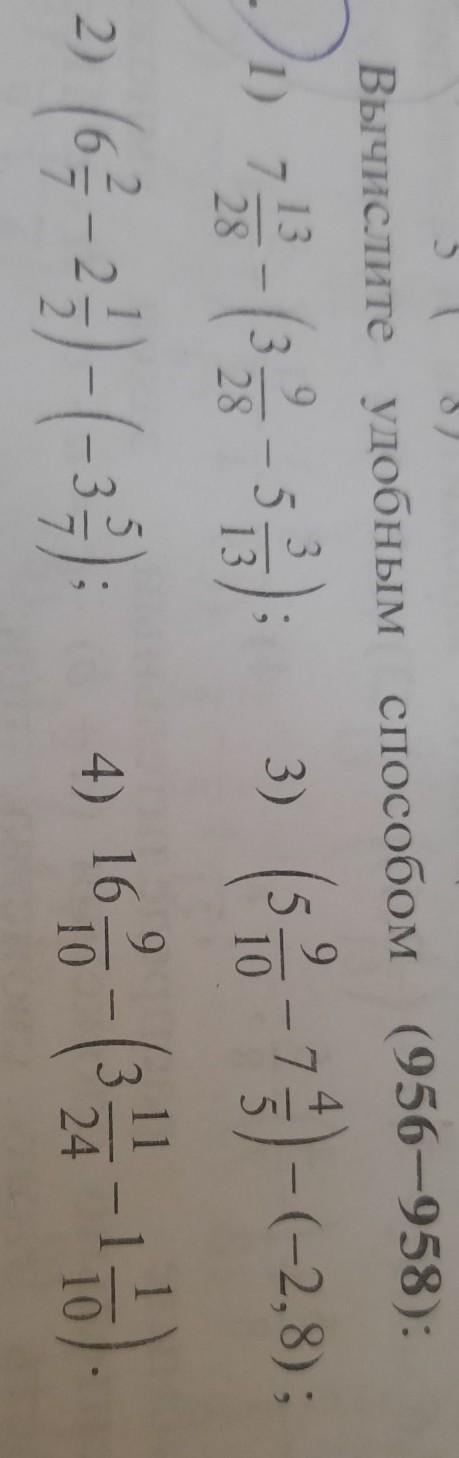 Вычислите удобным способом (956—958):
1) 7 13/28 − (3 9/28 − 5 3/13); 3) (5 9/10 − 7 4/5) − (−2,8);
2) (6 2/7 − 2 1/2) − (−3 5/7); 4) 16 9/10 − (3 11/24 − 1 1/10).